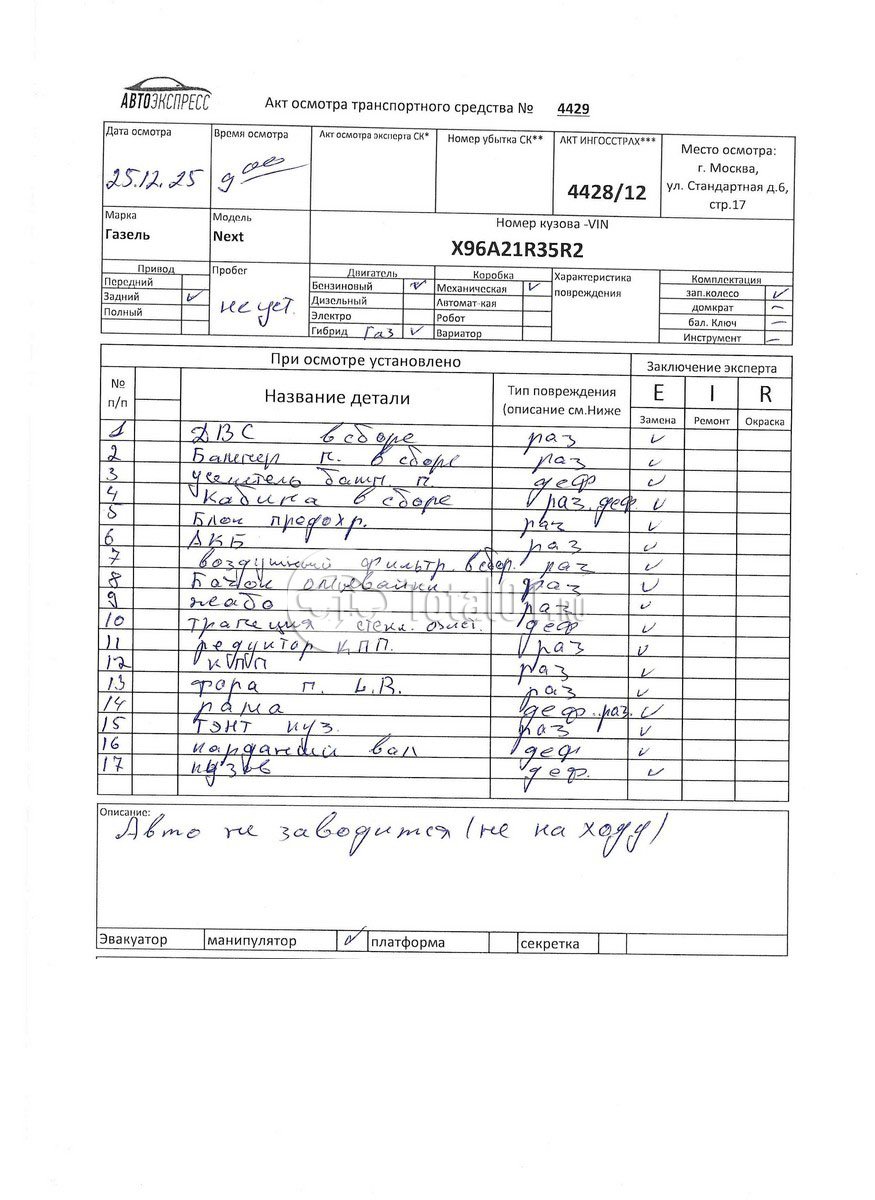 АВТОЭКСПРЕСС
Акт осмотра транспортного средства № 4429
Дата осмотра
25.12.25
Время осмотра
9 00
Акт осмотра эксперта СК*
Номер убытка СК**
АКТ ИНГОССТРАХ***
4428/12
Место осмотра:
г. Москва,
ул. Стандартная д.6,
стр.17
Марка
Газель
Модель
Next
Номер кузова -VIN
X96A21R35R2
Привод
Передний
Задний ✓
Полный
Пробег
не уст.
Двигатель
Бензиновый ✓
Дизельный
Электро
Гибрид Газ ✓
Коробка
Механическая ✓
Автомат-кая
Робот
Вариатор
Характеристика
повреждения
Комплектация
зап.колесо ✓
домкрат –
бал. Ключ –
Инструмент –
При осмотре установлено
Заключение эксперта
№
п/п
Название детали
Тип повреждения
(описание см.Ниже
E I R
Замена Ремонт Окраска
1 ДВС в сборе раз ✓
2 Бампер п. в сборе раз ✓
3 усилитель бамп. п. деф ✓
4 Кабина в сборе раз. деф ✓
5 Блок предохр. раз ✓
6 АКБ раз ✓
7 воздушный фильтр в сбор. раз ✓
8 Бачок омывайки раз ✓
9 жабо раз ✓
10 трапеция стекл. очист. деф ✓
11 редуктор КПП. раз ✓
12 КПП раз ✓
13 фара п. L.R. раз ✓
14 рама деф. раз. ✓
15 тэнт куз. раз ✓
16 карданный вал деф ✓
17 кузов деф. ✓
Total01.ru
Описание:
Авто не заводится (не на ходу)
Эвакуатор манипулятор ✓ платформа секретка